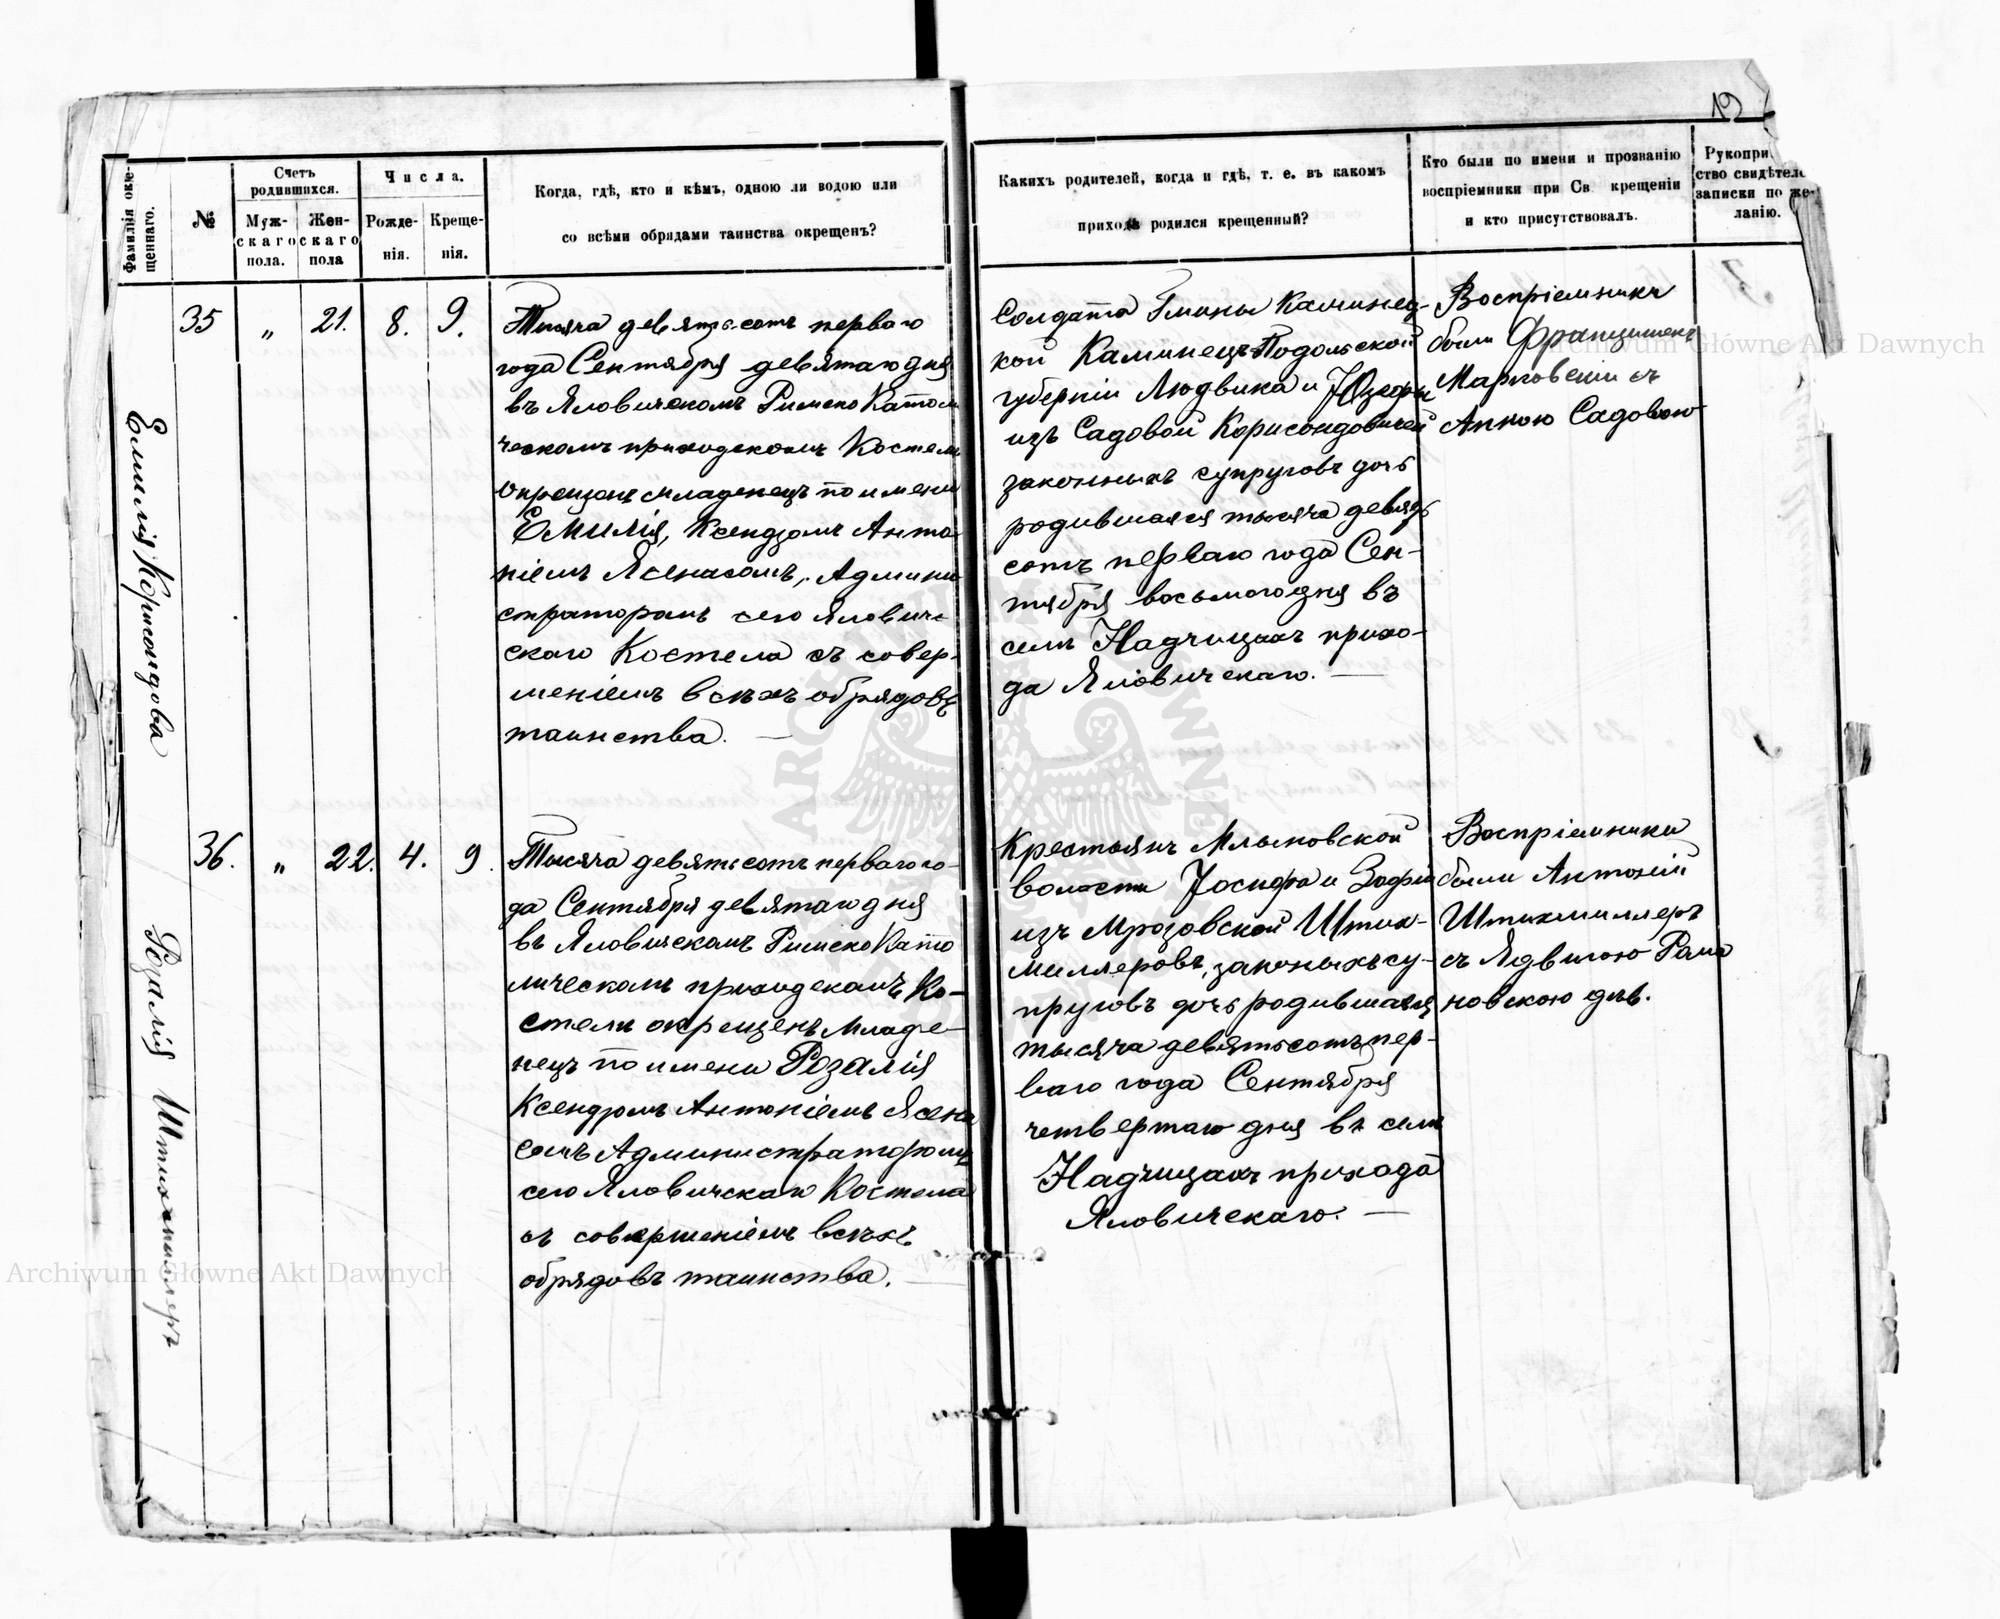 12
Фамилія окре-
щеннаго.
№
Счетъ
родившихся.
Муж-
скаго
пола.
Жен-
скаго
пола
Числа.
Рожде-
нія.
Креще-
нія.
Когда, гдѣ, кто и кѣмъ, одною ли водою или
со всѣми обрядами таинства окрещенъ?
Какихъ родителей, когда и гдѣ, т. е. въ какомъ
приходѣ родился крещенный?
Кто были по имени и прозванію
воспріемники при Св. крещеніи
и кто присутствовалъ.
Рукопри
ство свидѣтеле
записки по же-
ланію.
Емилія Корисондова
35 „ 21. 8. 9.
Тысяча девятьсотъ перваго
года Сентября девятаго дня
въ Яловичскомъ Римско Катол
ческомъ приходскомъ Костелѣ
окрещенъ младенецъ по имени
Емилія, Ксендзомъ Анто
ніемъ Ясенасомъ, Админи
страторомъ сего Ялович-
скаго Костела съ совер-
шеніемъ всѣхъ обрядовъ
таинства.
Солдата Гмины Каминец-
кой Каминецъ Подольской
губерніи Людвика и Юзефы
изъ Садовой Корисондовичей
законныхъ супруговъ дочь
родившаяся тысяча девять
сотъ перваго года Сен-
тября восьмого дня въ
селѣ Надчицахъ прихо-
да Яловичскаго.
Воспріемники
были Францишекъ
Марковскій съ
Анною Садовою
Розалія Штихмиллеръ
36. „ 22. 4. 9.
Тысяча девятьсотъ перваго го-
да Сентября девятаго дня
въ Яловичскомъ Римско Като
лическомъ приходскомъ Ко-
стелѣ окрещенъ младе-
нецъ по имени Розалія
Ксендзомъ Антоніемъ Ясена
сомъ Администраторомъ
сего Яловичскаго Костела
съ совершеніемъ всѣхъ
обрядовъ таинства.
Крестьянъ Млыновской
волости Іосифа и Зофіи
изъ Мрозовской Штих-
миллеровъ, законыхъ су-
пруговъ дочь родившаяся
тысяча девятьсотъ пер-
ваго года Сентября
четвертаго дня въ селѣ
Надчицахъ прихода
Яловичскаго.
Воспріемники
были Антоній
Штихмиллеръ
съ Ядвигою Рома
новскою дѣв.
Archiwum Główne Akt Dawnych
Archiwum Główne Akt Dawnych